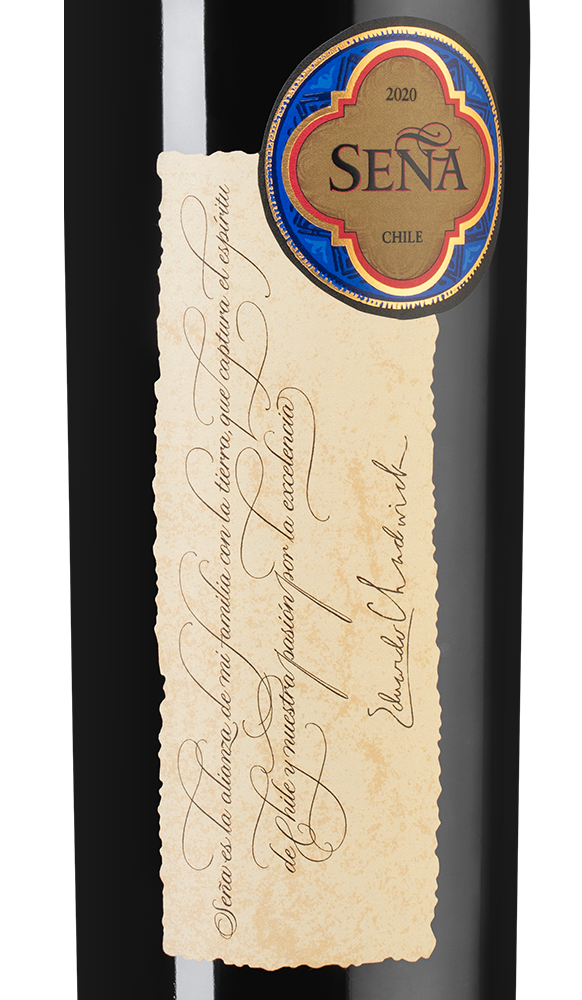 2020
SEÑA
CHILE
Seña es la alianza de mi familia con la tierra, que captura el espíritu
de Chile y nuestra pasión por la excelencia
Eduardo Chadwick